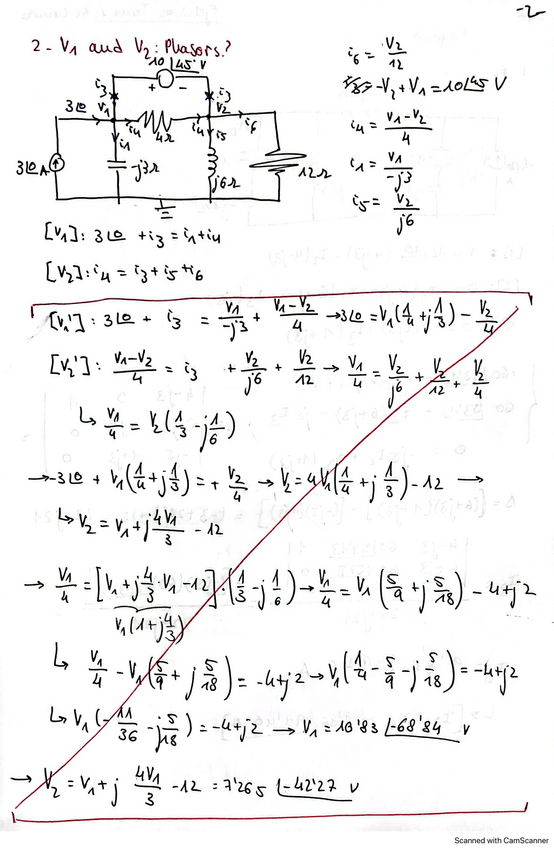 -2-
2- V1 and V2: Phasors?
10∠45° V
+ -
i3 i3
3∠0 V1 i4 4Ω i4 V2 i6
i1 i5
3∠0 A -j3Ω j6Ω 12Ω
i6 = V2/12
-V2 + V1 = 10∠45 V
i4 = (V1-V2)/4
i1 = V1/-j3
i5 = V2/j6
[V1]: 3∠0 + i3 = i1 + i4
[V2]: i4 = i3 + i5 + i6
[V1']: 3∠0 + i3 = V1/-j3 + (V1-V2)/4 → 3∠0 = V1(1/4 + j1/3) - V2/4
[V2']: (V1-V2)/4 = i3 + V2/j6 + V2/12 → V1/4 = V2/j6 + V2/12 + V2/4
↳ V1/4 = V2(1/3 - j1/6)
→ -3∠0 + V1(1/4 + j1/3) = + V2/4 → V2 = 4V1(1/4 + j1/3) - 12 →
↳ V2 = V1 + j4V1/3 - 12
→ V1/4 = [V1 + j4/3·V1 - 12]·(1/3 - j1/6) → V1/4 = V1(5/9 + j5/18) - 4 + j2
V1(1 + j4/3)
↳ V1/4 - V1(5/9 + j5/18) = -4 + j2 → V1(1/4 - 5/9 - j5/18) = -4 + j2
↳ V1(-11/36 - j5/18) = -4 + j2 → V1 = 10'83 ∠-68'84 V
→ V2 = V1 + j 4V1/3 - 12 = 7'265 ∠-42'27 V
Scanned with CamScanner